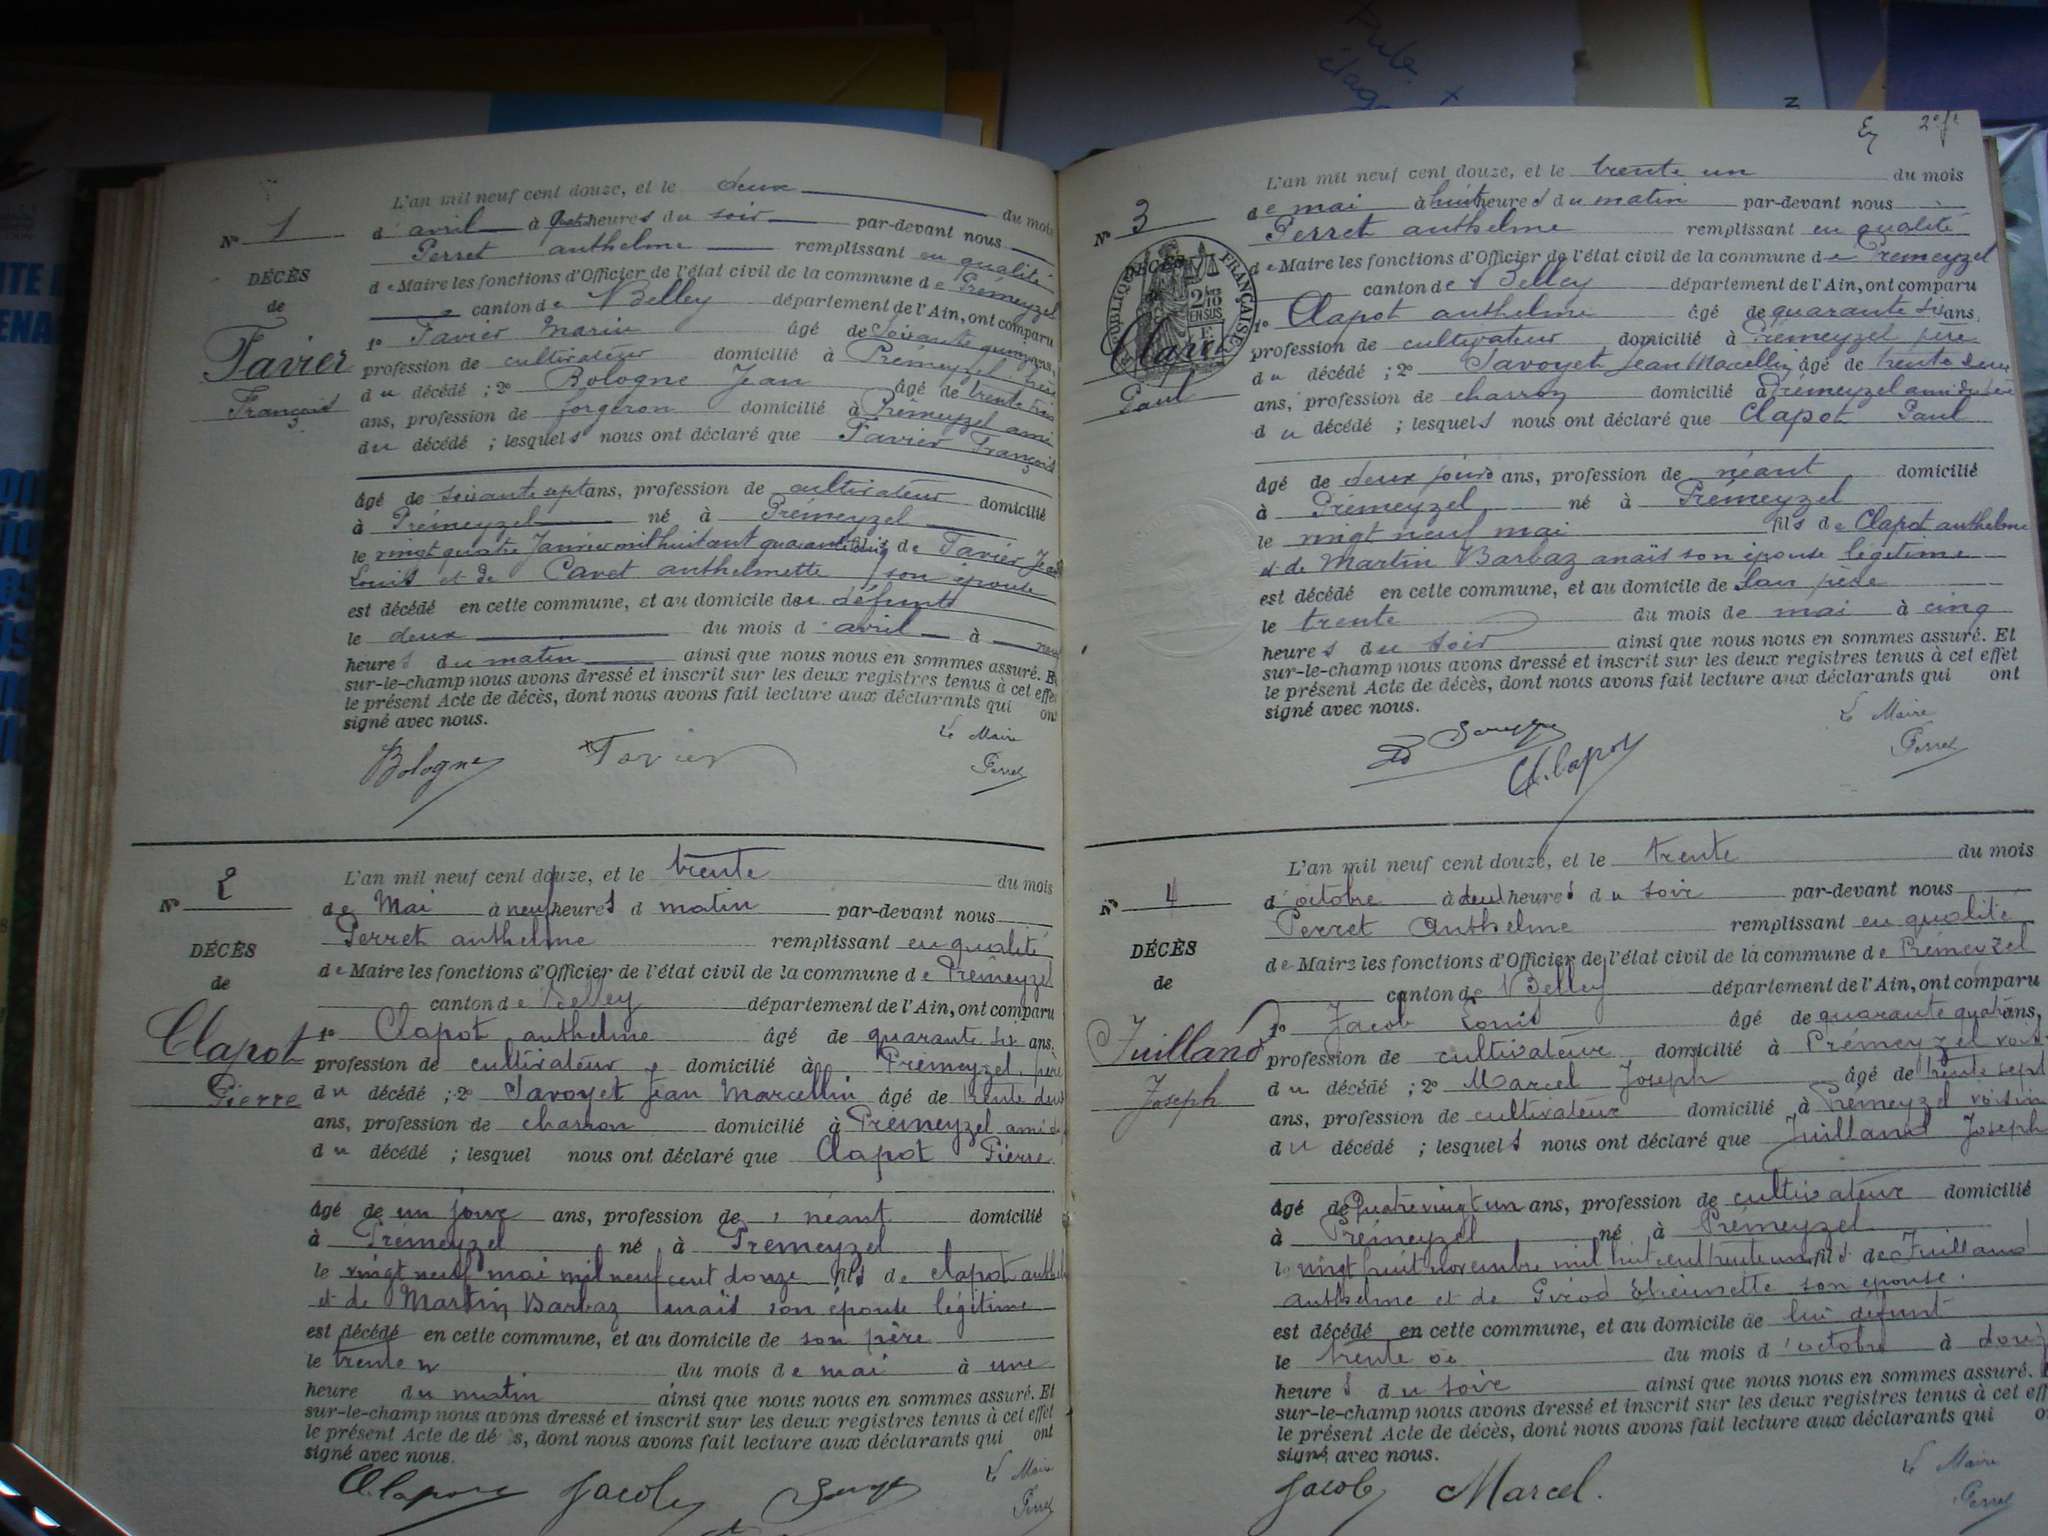 Pub. +
N
L'an mil neuf cent douze, et le deux du mois
d'avril à quatre heures du soir par-devant nous
Perret anthelme remplissant en qualité
de Maire les fonctions d'Officier de l'état civil de la commune de Prémeyzel
canton de Belley département de l'Ain, ont comparu
1º Favier Marin âgé de soixante quinze ans,
profession de cultivateur domicilié à Prémeyzel
du décédé ; 2º Bologne Jean âgé de trente trois
ans, profession de forgeron domicilié à Prémeyzel ami
du décédé ; lesquels nous ont déclaré que Favier François
âgé de soixante sept ans, profession de cultivateur domicilié
à Prémeyzel né à Prémeyzel
le vingt quatre Janvier mil huit cent quarante cinq fils de Favier Jean
Louis et de Cavet anthelmette son épouse
est décédé en cette commune, et au domicile de défunt
le deux du mois d'avril à
heures du matin ainsi que nous nous en sommes assuré. Et
sur-le-champ nous avons dressé et inscrit sur les deux registres tenus à cet effet
le présent Acte de décès, dont nous avons fait lecture aux déclarants qui ont
signé avec nous.
Nº 1
DÉCÈS
de
Favier
François
Le Maire
Bologne Favier Perret
L'an mil neuf cent douze, et le trente du mois
de Mai à neuf heures d matin par-devant nous
Perret anthelme remplissant en qualité
de Maire les fonctions d'Officier de l'état civil de la commune de Prémeyzel
canton de Belley département de l'Ain, ont comparu
1º Clapot anthelme âgé de quarante six ans,
profession de cultivateur domicilié à Prémeyzel, père
du décédé ; 2º Savoyet Jean Marcellin âgé de trente deux
ans, profession de charron domicilié à Prémeyzel ami
du décédé ; lesquel nous ont déclaré que Clapot Pierre
âgé de un jour ans, profession de néant domicilié
à Prémeyzel né à Prémeyzel
le vingt neuf mai mil neuf cent douze fils de Clapot anthelme
et de Martin Barbaz anaïs son épouse légitime
est décédé en cette commune, et au domicile de son père
le trente du mois de mai à une
heure du matin ainsi que nous nous en sommes assuré. Et
sur-le-champ nous avons dressé et inscrit sur les deux registres tenus à cet effet
le présent Acte de décès, dont nous avons fait lecture aux déclarants qui ont
signé avec nous.
Nº 2
DÉCÈS
de
Clapot
Pierre
Le Maire
Clapot Jacob Perret
2e ft
L'an mil neuf cent douze, et le trente un du mois
de mai à huit heures du matin par-devant nous
Perret anthelme remplissant en qualité
de Maire les fonctions d'Officier de l'état civil de la commune de Prémeyzel
canton de Belley département de l'Ain, ont comparu
1º Clapot anthelme âgé de quarante six ans,
profession de cultivateur domicilié à Prémeyzel père
du décédé ; 2º Savoyet Jean Marcellin âgé de trente deux
ans, profession de charron domicilié à Prémeyzel ami du père
du décédé ; lesquels nous ont déclaré que Clapot Paul
âgé de deux jours ans, profession de néant domicilié
à Prémeyzel né à Prémeyzel
le vingt neuf mai fils de Clapot anthelme
et de Martin Barbaz anaïs son épouse légitime
est décédé en cette commune, et au domicile de son père
le trente du mois de mai à cinq
heures du soir ainsi que nous nous en sommes assuré. Et
sur-le-champ nous avons dressé et inscrit sur les deux registres tenus à cet effet
le présent Acte de décès, dont nous avons fait lecture aux déclarants qui ont
signé avec nous.
Nº 3
DÉCÈS
RÉPUBLIQUE FRANÇAISE
2/10
EN SUS
Clapot
Paul
Le Maire
Clapot Perret
L'an mil neuf cent douze, et le trente du mois
d'octobre à deux heures du soir par-devant nous
Perret Anthelme remplissant en qualité
de Maire les fonctions d'Officier de l'état civil de la commune de Prémeyzel
canton de Belley département de l'Ain, ont comparu
1º Jacob Louis âgé de quarante quatre ans,
profession de cultivateur domicilié à Prémeyzel voisin
du décédé ; 2º Marcel Joseph âgé de trente sept
ans, profession de cultivateur domicilié à Prémeyzel voisin
du décédé ; lesquels nous ont déclaré que Juilland Joseph
âgé de Quatre vingt un ans, profession de cultivateur domicilié
à Prémeyzel né à Prémeyzel
le vingt huit novembre mil huit cent trente un fils de Juilland
anthelme et de Girod Etiennette son épouse.
est décédé en cette commune, et au domicile de lui défunt
le trente du mois d'octobre à
heures du soir ainsi que nous nous en sommes assuré.
sur-le-champ nous avons dressé et inscrit sur les deux registres tenus à cet eff
le présent Acte de décès, dont nous avons fait lecture aux déclarants qui
signé avec nous.
Nº 4
DÉCÈS
de
Juilland
Joseph
Le Maire
Jacob Marcel. Perret